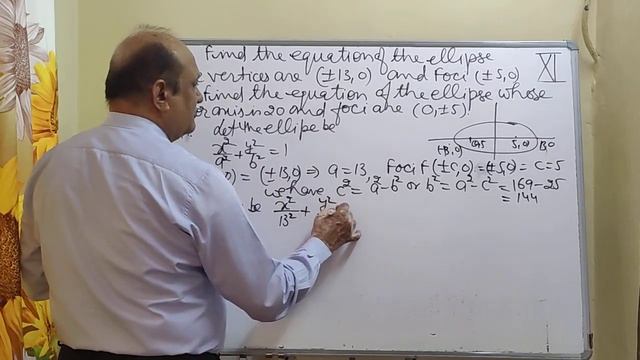 Find the equation of the ellipse
vertices are (±13,0) and Foci (±5,0)
XI
find the equation of the ellipse whose
axis is 20 and foci are (0,±5)
let the ellipe be
x²/a² + y²/b² = 1
(-13,0) 5,0 13,0
0) = (±13,0) ⇒ a = 13, Foci F (±c,0) = (±5,0) = C=5
we have c² = a² - b² or b² = a² - c² = 169 - 25
= 144
be x²/13² + y²